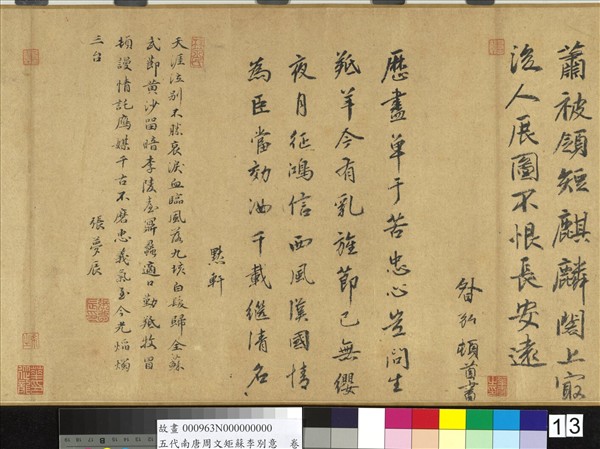 蕭被領短麒麟閣上寂
後人展圖不恨長安遠
弘頓首書
歷盡單于苦忠心豈問生
羝羊今有乳旌節已無纓
夜月征鴻信西風漢國情
為臣當効汝千載繼清名
黙軒
天涯泣別不勝哀淚血臨風落九垓白髮歸全蘇
武節黄沙留暗李陵臺羈適口勤羝牧冒
頓謾情託鴈媒千古不磨忠義氣至今光焰燭
三台
張夢辰
故畫 000963N000000000
五代南唐周文矩蘇李別意 卷
13